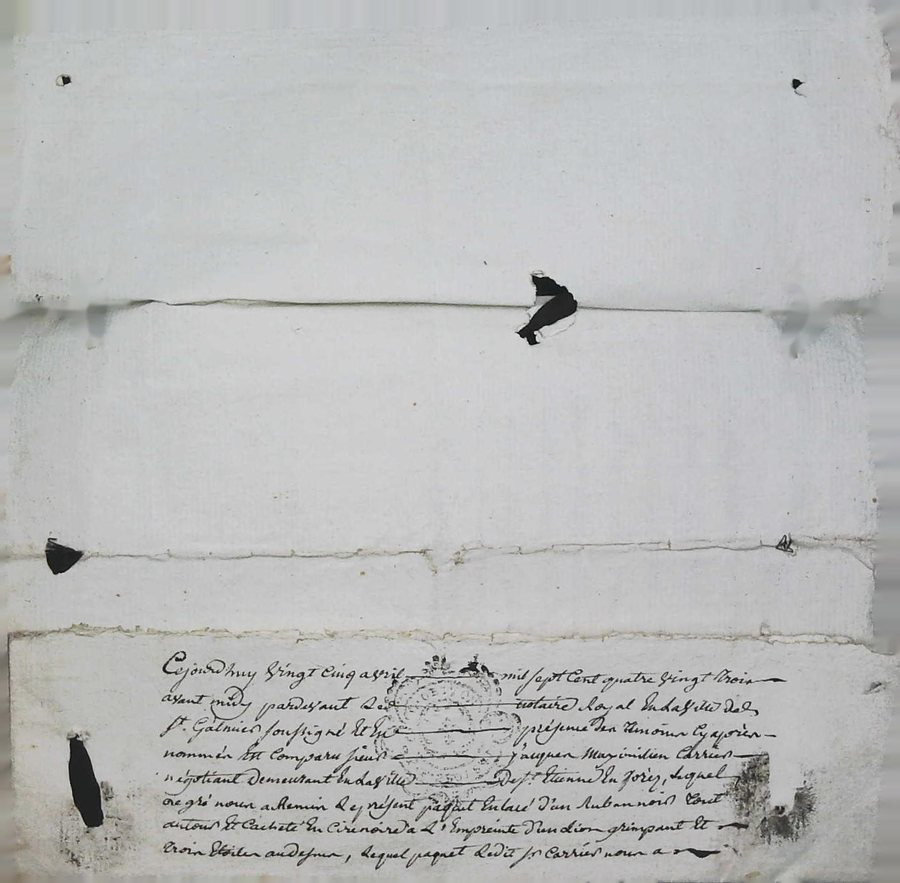 Cejourdhuy vingt cinq avril mil sept cent quatre vingt trois
avant midy pardevant Le notaire Royal En La ville de
St. Galmier soussigné Et En présence des Temoins Cy après
nommés Est Comparu sieur jacques Maximilien Carrier
négotiant demeurant En La ville De St. Etienne En forez, Lequel
de gré nous a Remis Le présent paquet Enlacé d'un Ruban noir tout
autour Et Cacheté En Cire noire a L'Empreinte d'un Lion grimpant Et
trois Etoiles audessus, Lequel paquet Ledit sr Carrier nous a